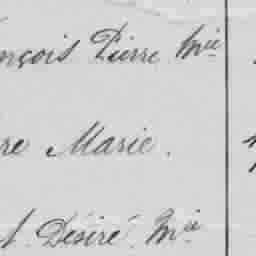 nçois Pierre Mie
re Marie.
t Désiré Mie